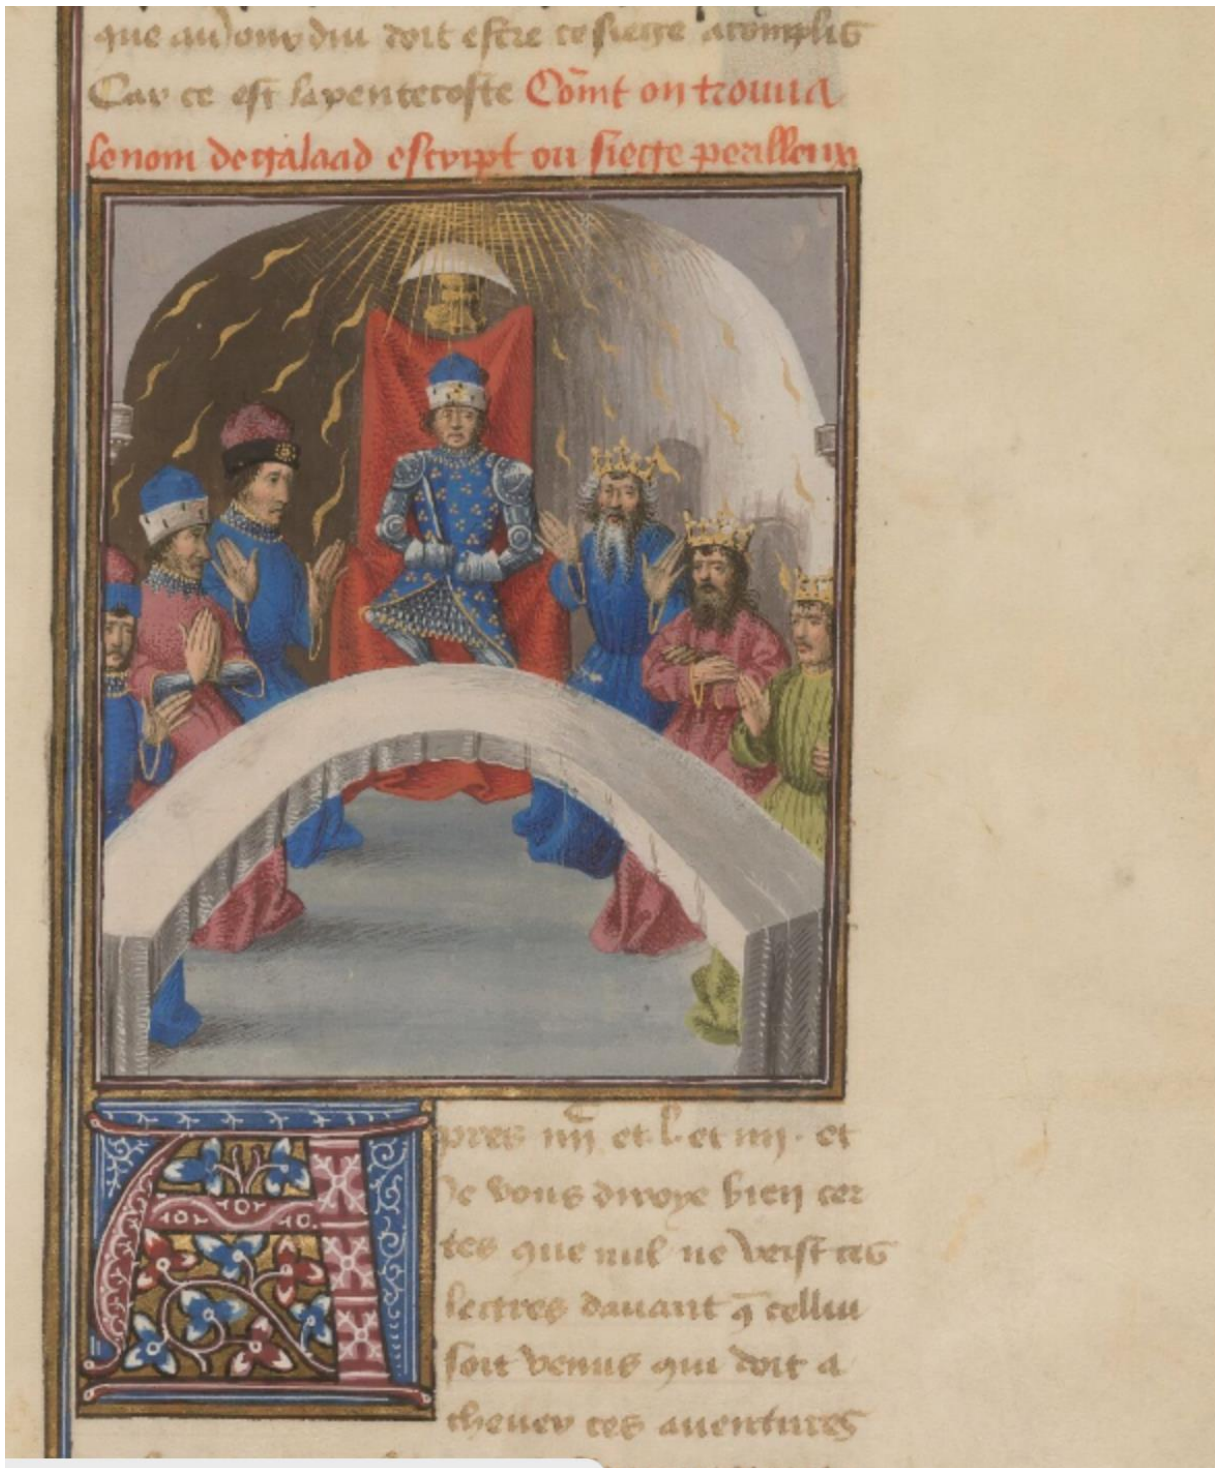 que au jour dui doit estre ce siege acomplis
Car ce est la pentecoste Cōmt on trouua
le nom de galaad escript ou siege perilleux
Apres iiiiC et L et iiii. et
Je vous diroye bien cer
tes que nul ne veist ces
lectres dauant q̄ cellui
soit venus qui doit a
cheuer ces auentures